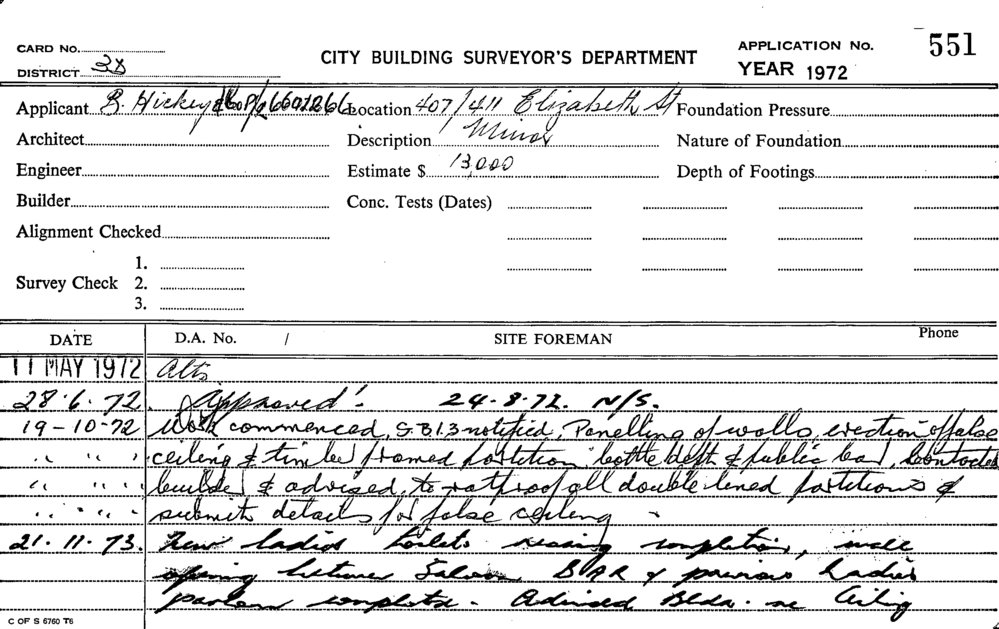 CARD No.
DISTRICT 38
CITY BUILDING SURVEYOR'S DEPARTMENT
APPLICATION No. 551
YEAR 1972
Applicant B. Hickey & Co P/L 6602866
Location 407/411 Elizabeth St
Foundation Pressure
Architect
Description Minor
Nature of Foundation
Engineer
Estimate $ 13,000
Depth of Footings
Builder
Conc. Tests (Dates)
Alignment Checked
Survey Check
1.
2.
3.
DATE
D.A. No. /
SITE FOREMAN
Phone
11 MAY 1972 Alts
28.6.72. Approved! 24-8-72. N/S.
19-10-72 Work commenced, S.B.I.3 notified, Panelling of walls, erection of false
" " " ceiling & timber framed partition bottle dept & public bar, Contacted
" " " builder & advised, to ratproof all double lined partitions &
" " " submit details for false ceiling
21.11.73. New ladies toilets nearing completion, wall
opening between Saloon BAR & previous Ladies
parlour complete - Advised Bldr. re Ceiling
C OF S 6760 T6